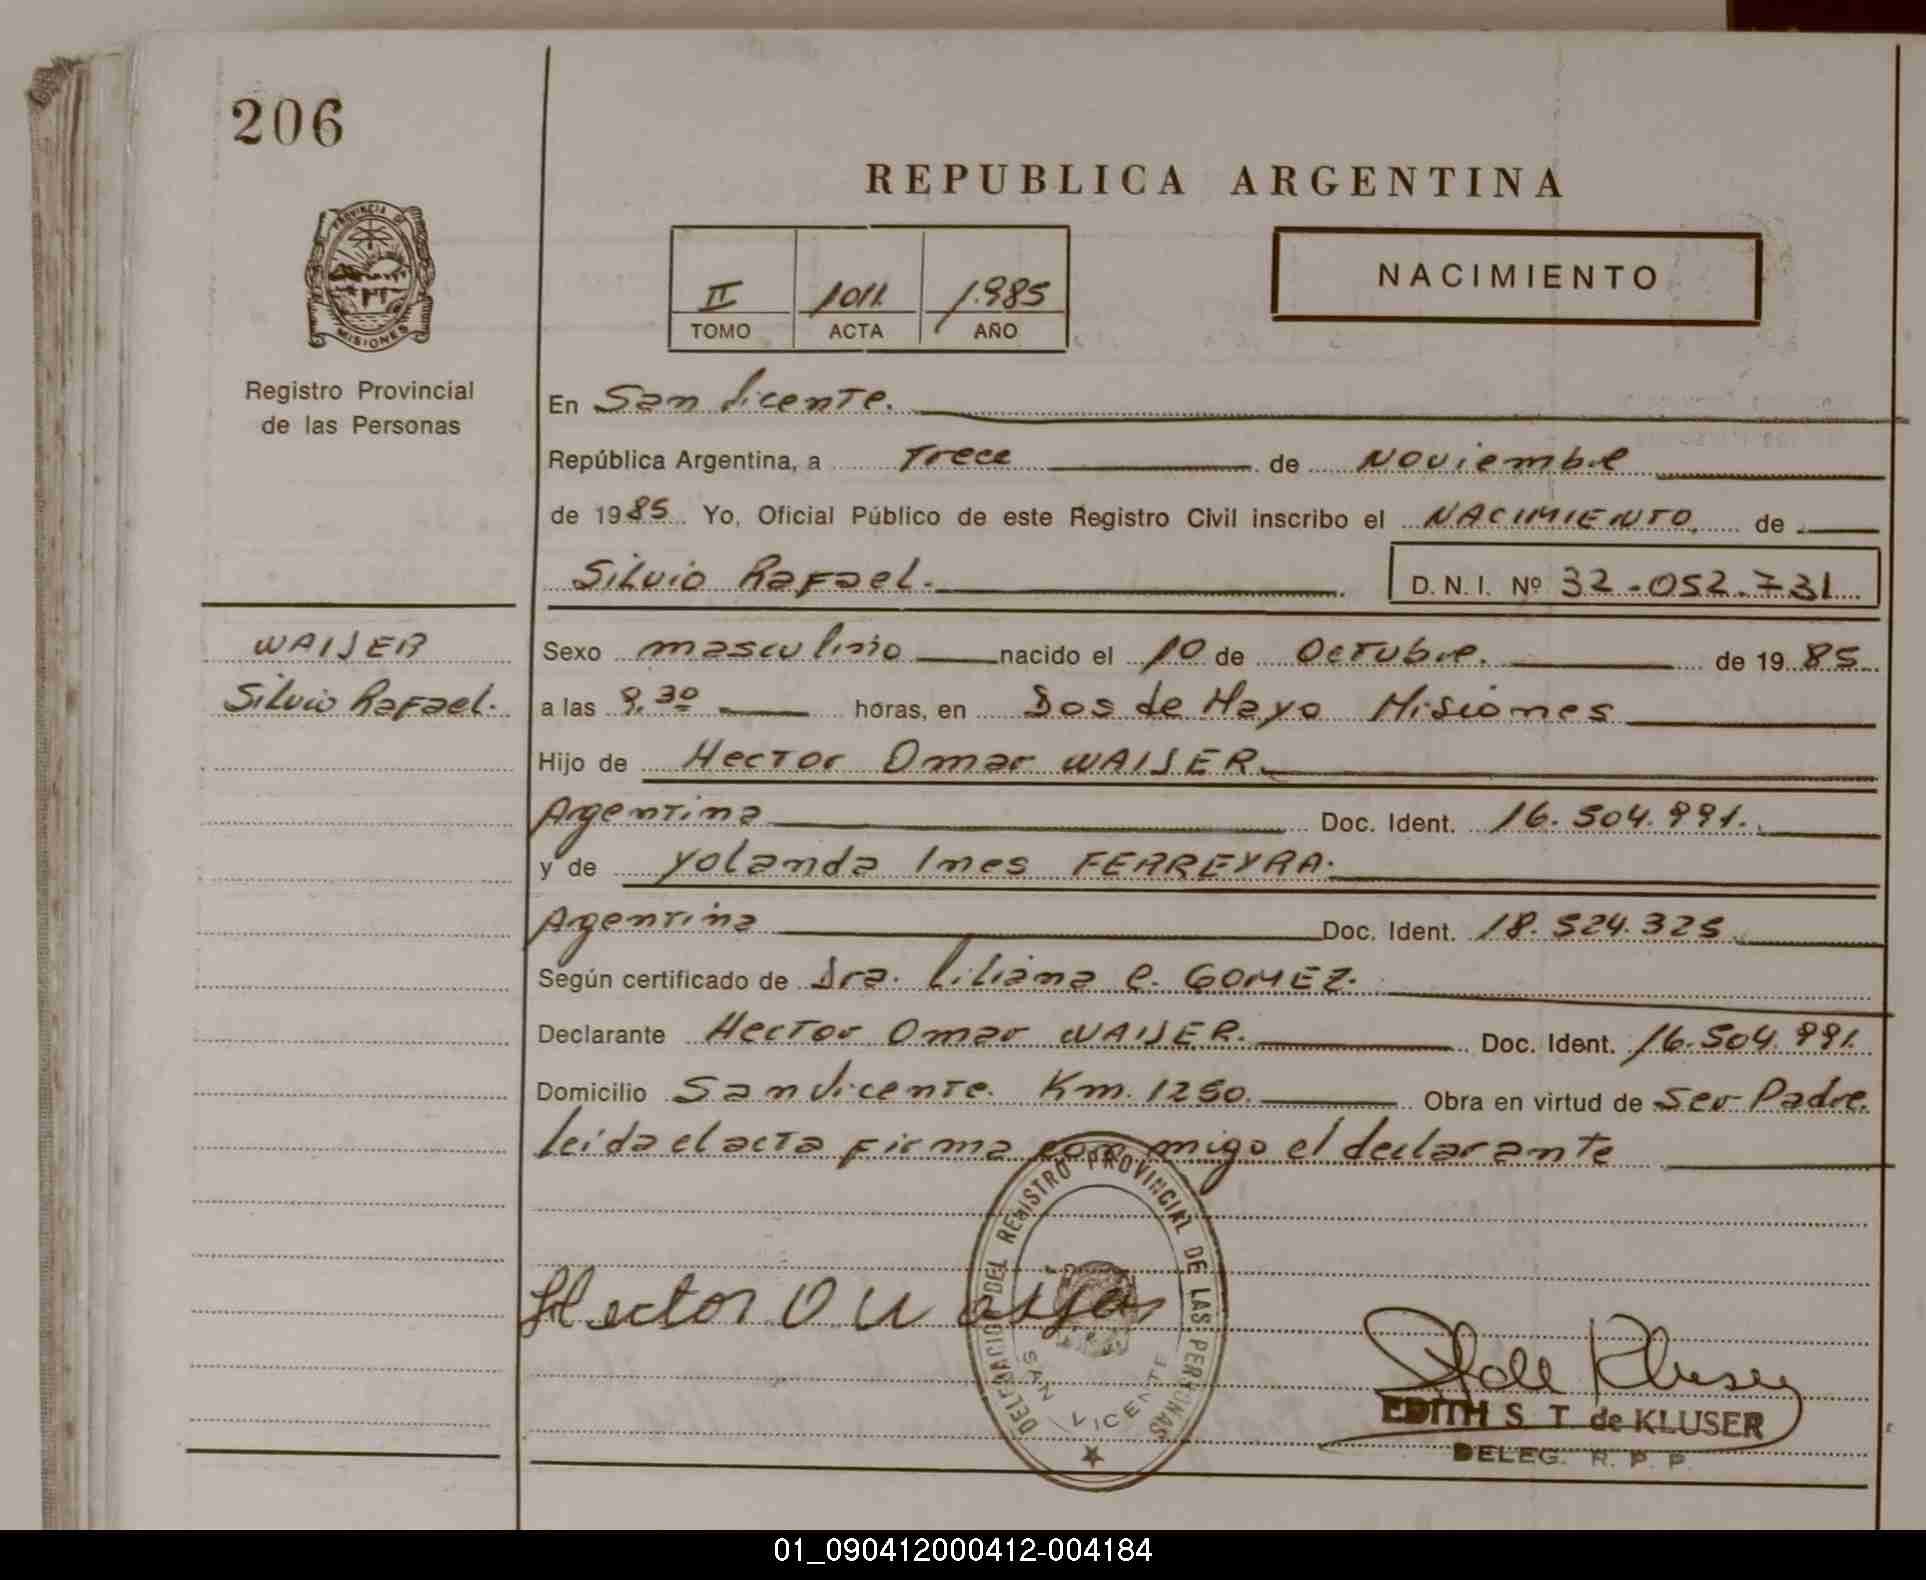 206
PROVINCIA DE
MISIONES
Registro Provincial
de las Personas
REPUBLICA ARGENTINA
II 1011. 1.985
TOMO ACTA AÑO
NACIMIENTO
En San Vicente.
República Argentina, a Trece de Noviembre
de 1985 Yo, Oficial Público de este Registro Civil inscribo el NACIMIENTO de
Silvio Rafael. D. N. I. Nº 32.052.731
WAIJER
Silvio Rafael.
Sexo masculino nacido el 10 de Octubre. de 1985
a las 9.30 horas, en Dos de Mayo Misiones
Hijo de Hector Omar WAIJER.
Argentina Doc. Ident. 16.504.991.
y de Yolanda Ines FERREYRA.
Argentina Doc. Ident. 18.524.325
Según certificado de Dra. Liliana C. GOMEZ.
Declarante Hector Omar WAIJER. Doc. Ident. 16.504.991.
Domicilio San Vicente. Km. 1250. Obra en virtud de Ser Padre.
leida el acta firma con migo el declarante
DELEGACION DEL REGISTRO PROVINCIAL DE LAS PERSONAS
SAN VICENTE
Hector O
EDITH S. T. de KLUSER
DELEG. R. P. P.
01_090412000412-004184